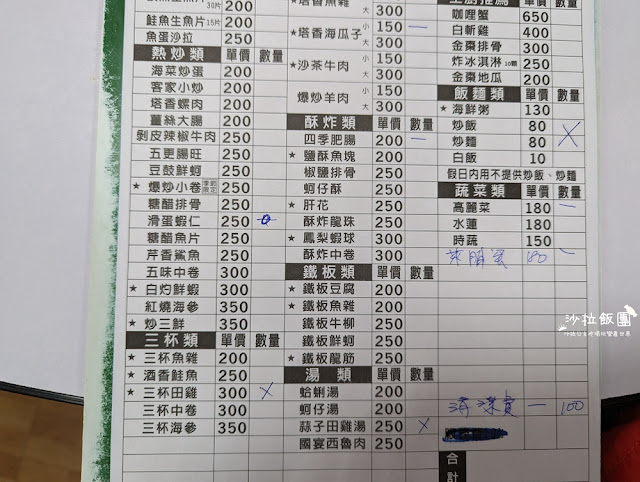 200
30片
鮭魚生魚片 15片 200
魚蛋沙拉 250
熱炒類 單價 數量
海菜炒蛋 200
客家小炒 200
塔香螺肉 200
薑絲大腸 200
剝皮辣椒牛肉 250
五更腸旺 250
豆鼓鮮蚵 250
★ 爆炒小卷 250
糖醋排骨 250
滑蛋蝦仁 250
糖醋魚片 250
芹香鯊魚 250
五味中卷 300
★ 白灼鮮蝦 300
紅燒海參 350
★ 炒三鮮 350
三杯類 單價 數量
★ 三杯魚雞 200
★ 酒香鮭魚 250
★ 三杯田雞 300 X
三杯中卷 300
三杯海參 350
★塔香魚雞
大 300
★塔香海瓜子 小 150 一
大 300
★沙茶牛肉 小 150
大 300
爆炒羊肉 小 150
大 300
酥炸類 單價 數量
四季肥腸 200 一
★ 鹽酥魚塊 200
椒鹽排骨 200
蚵仔酥 200
★ 肝花 250
酥炸龍珠 250
★ 鳳梨蝦球 300
酥炸中卷 300
鐵板類 單價 數量
★ 鐵板豆腐 200
★ 鐵板魚雞 200
鐵板牛柳 250
鐵板鮮蚵 250
★ 鐵板龍筋 250
湯類 單價 數量
蛤蜊湯 200
蚵仔湯 200
蒜子田雞湯 250 X
國宴西魯肉 250
主廚推薦 單價 數量
咖哩蟹 650
白斬雞 400
金棗排骨 300
炸冰淇淋 10顆 250
金棗地瓜 200
飯麵類 單價 數量
★ 海鮮粥 130
炒飯 80 X
炒麵 80
白飯 10
假日內用不提供炒飯、炒麵
蔬菜類 單價 數量
高麗菜 180 一
水蓮 180
時蔬 150
180 一
一 100
合計
沙拉飯團